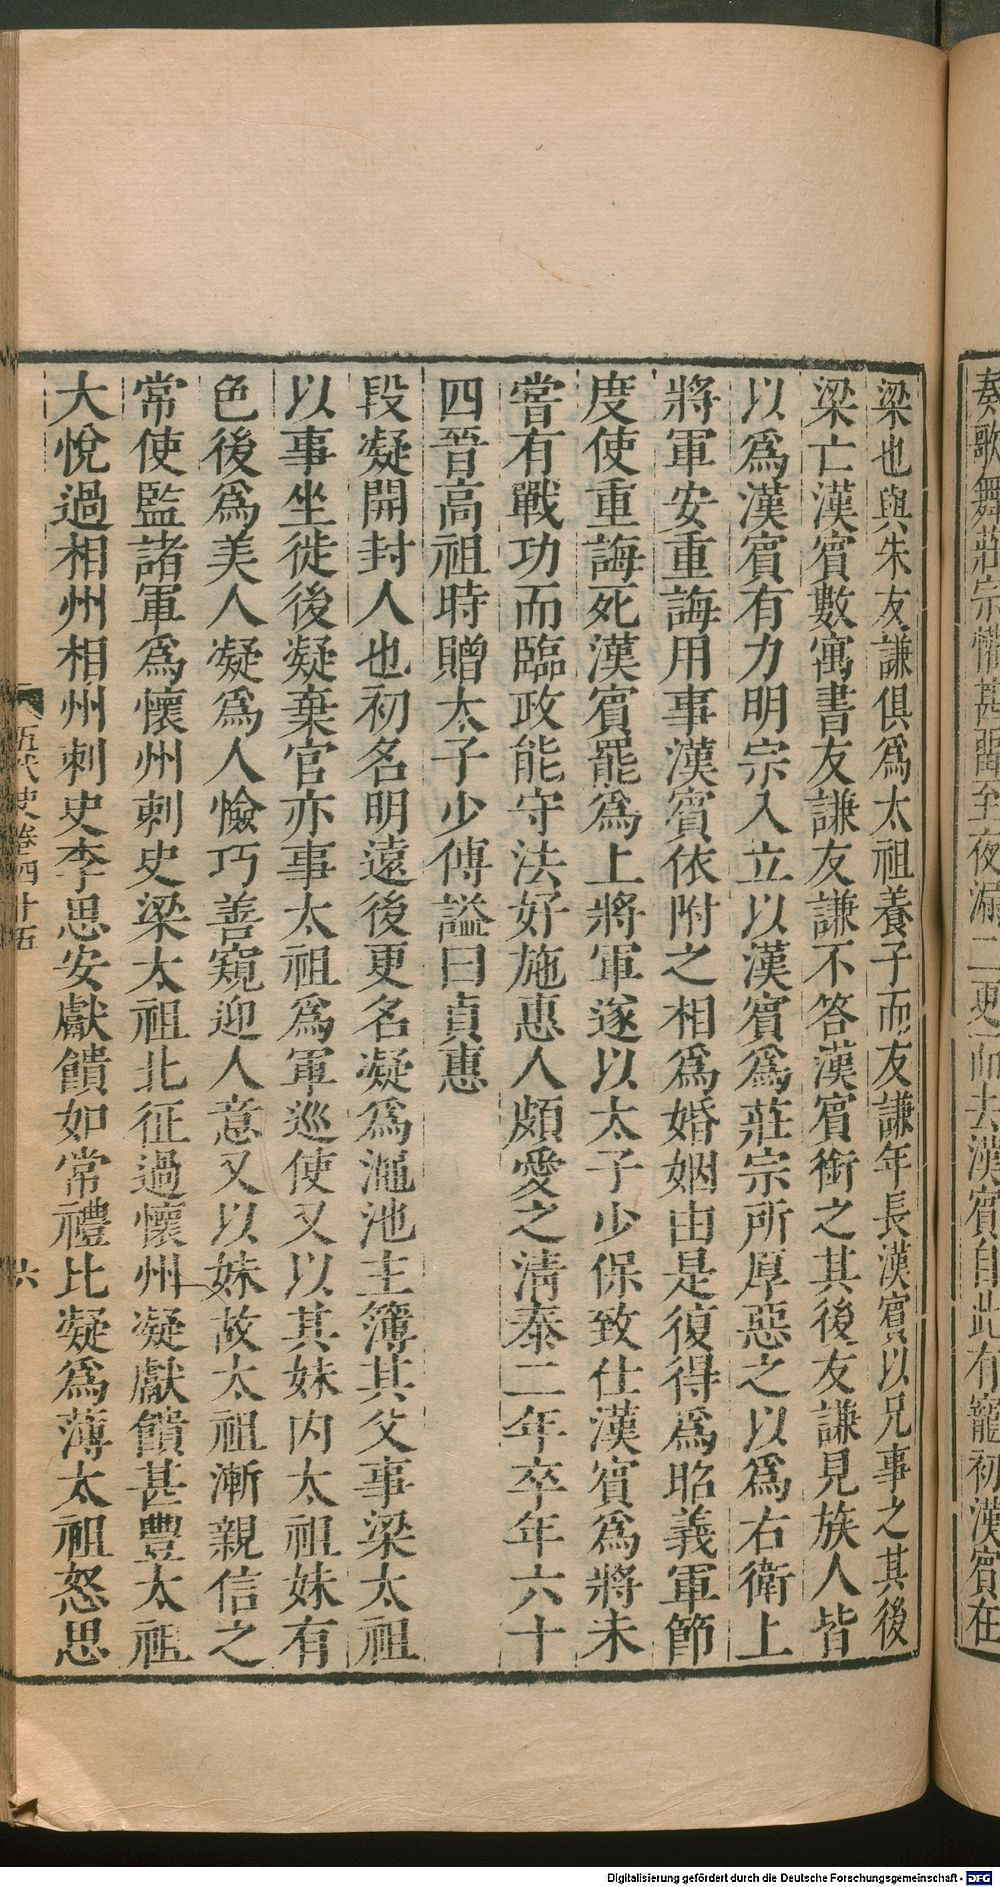 奏歌舞莊宗懽甚留至夜漏二更而去漢賓自此有寵初漢賓在
梁也與朱友謙俱爲太祖養子而友謙年長漢賓以兄事之其後
梁亡漢賓數寓書友謙友謙不答漢賓銜之其後友謙見族人皆
以爲漢賓有力明宗入立以漢賓爲莊宗所厚惡之以爲右衛上
將軍安重誨用事漢賓依附之相爲婚姻由是復得爲昭義軍節
度使重誨死漢賓罷爲上將軍遂以太子少保致仕漢賓爲將未
嘗有戰功而臨政能守法好施惠人頗愛之淸泰二年卒年六十
四晉高祖時贈太子少傅謚曰貞惠
段凝開封人也初名明遠後更名凝爲澠池主簿其父事梁太祖
以事坐徙後凝棄官亦事太祖爲軍巡使又以其妹内太祖妹有
色後爲美人凝爲人憸巧善窺迎人意又以妹故太祖漸親信之
常使監諸軍爲懷州刺史梁太祖北征過懷州凝獻饋甚豐太祖
大悅過相州相州刺史李思安獻饋如常禮比凝爲薄太祖怒思
五代史卷四十五
六
Digitalisierung gefördert durch die Deutsche Forschungsgemeinschaft - DFG